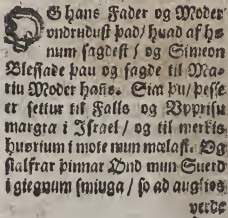 OG hans Fader og Moder
vndrudust þad / huad af ho-
num sagdest / og Simeon
Blessade þau og sagde til Ma-
riu Moder hans. Sia þu / þesse
er settur til Falls og Vpprisu
margra i Israel / og til merkis
huorium i mote mun mælast. Og
sialfrar þinnar Ønd mun Suerd
i giegnum smiuga / so ad auglios
verde